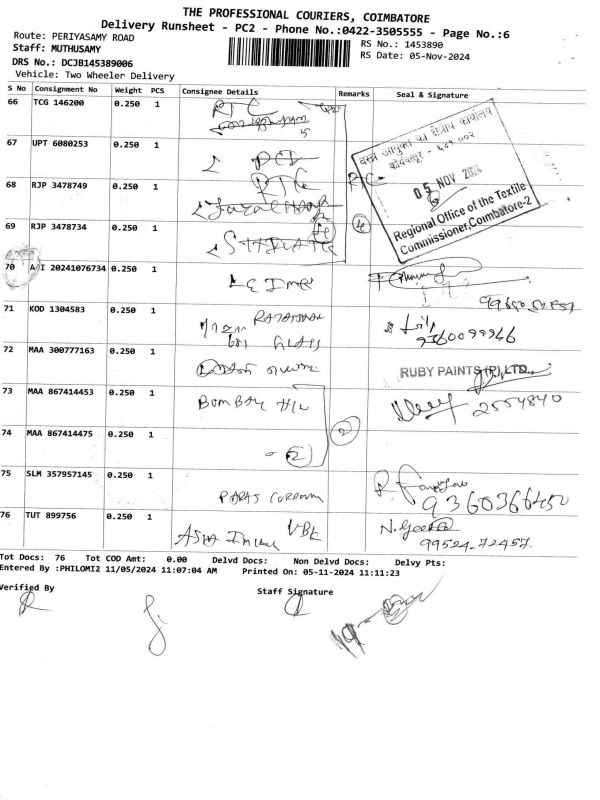 THE PROFESSIONAL COURIERS, COIMBATORE
Delivery Runsheet - PC2 - Phone No.:0422-3505555 - Page No.:6
Route: PERIYASAMY ROAD
RS No.: 1453890
Staff: MUTHUSAMY
RS Date: 05-Nov-2024
DRS No.: DCJB145389006
Vehicle: Two Wheeler Delivery
S No Consignment No Weight PCS Consignee Details Remarks Seal & Signature
66 TCG 146200 0.250 1 RTC
67 UPT 6080253 0.250 1
68 RJP 3478749 0.250 1 RTC RTC
69 RJP 3478734 0.250 1 4
वस्त्र आयुक्त का क्षेत्रीय कार्यालय
कोयंबत्तूर - ६४१ ००२
05 NOV 2024
Regional Office of the Textile
Commissioner, Coimbatore-2
70 AMI 20241076734 0.250 1
71 KOD 1304583 0.250 1
GLASS
9360099966
72 MAA 300777163 0.250 1
RUBY PAINTS (P) LTD.,
73 MAA 867414453 0.250 1 BOMBAY 2554840
2
74 MAA 867414475 0.250 1 - 2
75 SLM 357957145 0.250 1 PARAS
9360366450
76 TUT 899756 0.250 1 ASIA VBK N. Geetha
99524-72457.
Tot Docs: 76 Tot COD Amt: 0.00 Delvd Docs: Non Delvd Docs: Delvy Pts:
Entered By :PHILOMI2 11/05/2024 11:07:04 AM Printed On: 05-11-2024 11:11:23
Verified By Staff Signature